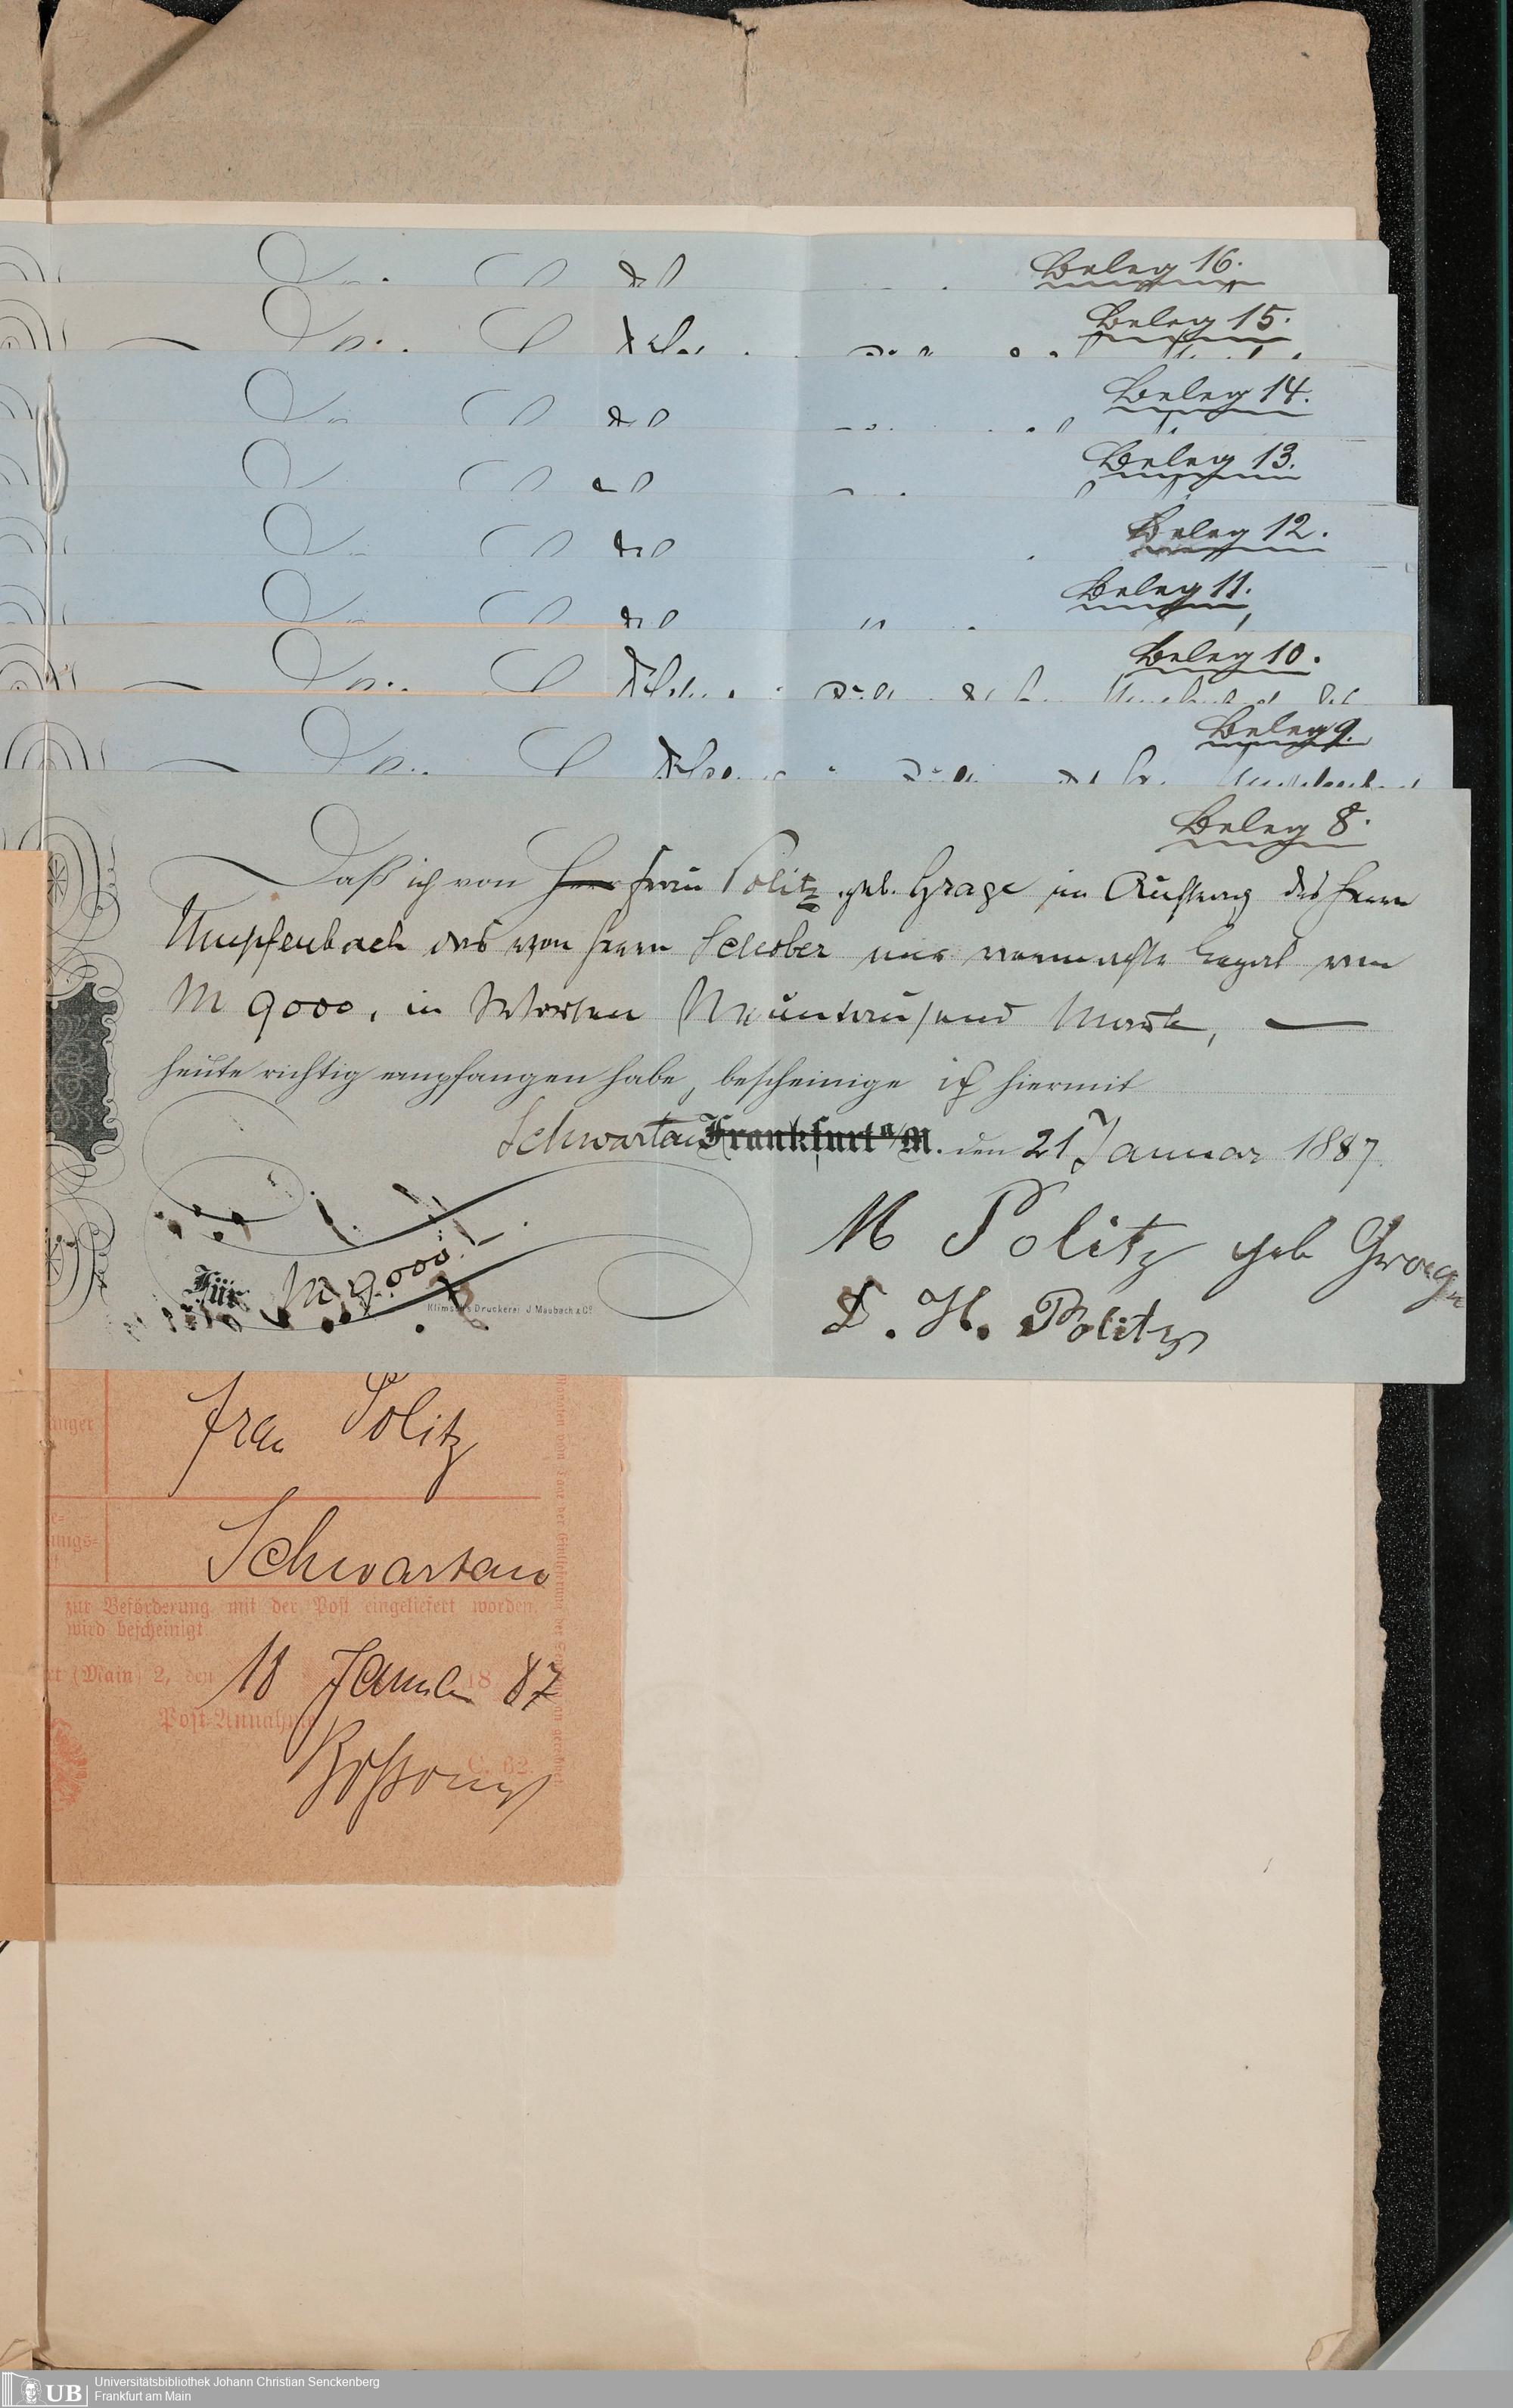 Beleg 16.
Beleg 15.
Beleg 14.
Beleg 13.
Beleg 12.
Beleg 11.
Beleg 10.
Beleg 9.
Beleg 8.
Daß ich von Herr Frau Politz geb. Grage im Auftrag des Herrn
Umpfenbach das von Herrn Schober mir vermachte Legat von
M 9000, in Worten Neuntausend Mark,
heute richtig empfangen habe, bescheinige ich hiermit
Schwartau Frankfurt a/M. den 21 Januar 1887.
M Politz geb Grage
Für M 9.000.
Klimsch's Druckerei J. Maubach & Co.
D. H. Politz
Frau Politz
Schwartau
zur Beförderung mit der Post eingeliefert worden,
wird bescheinigt
(Main) 2, den 18 Januar 1887
Post-Annahme
C. 62.
UB
Universitätsbibliothek Johann Christian Senckenberg
Frankfurt am Main